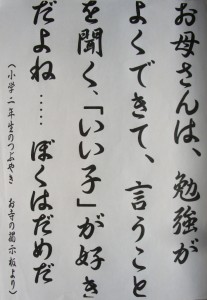 お母さんは、勉強が
よくできて、言うこと
を聞く、「いい子」が好き
だよね…… ぼくはだめだ
（小学二年生のつぶやき　お寺の掲示板より）